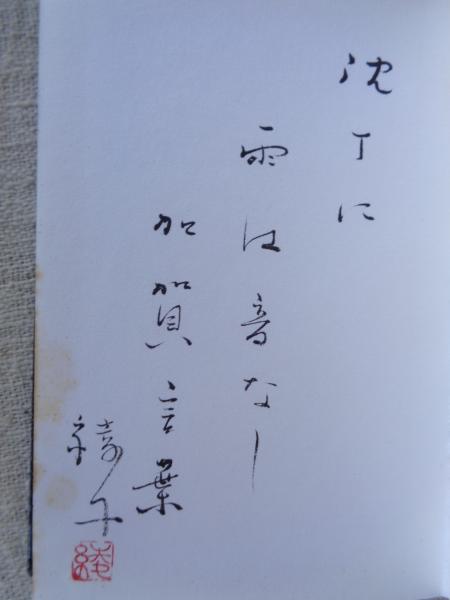 沈丁に
雨は音なし
加賀言葉
綾子
綾